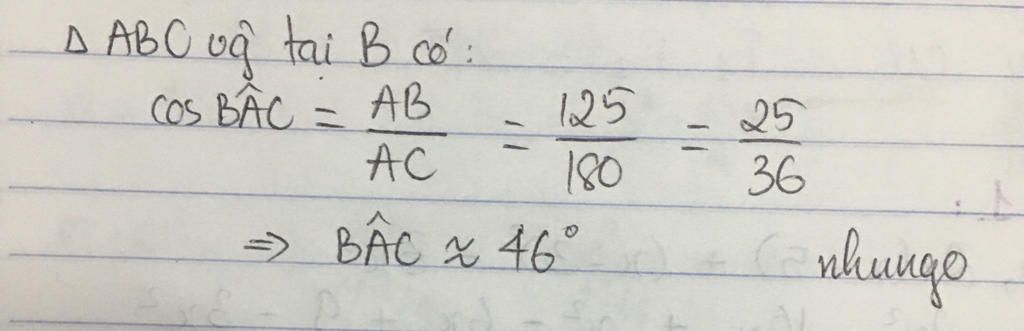 Δ ABC vg̃ tại B có:
cos BÂC = AB/AC = 125/180 = 25/36
=> BÂC ≈ 46°
nhungo